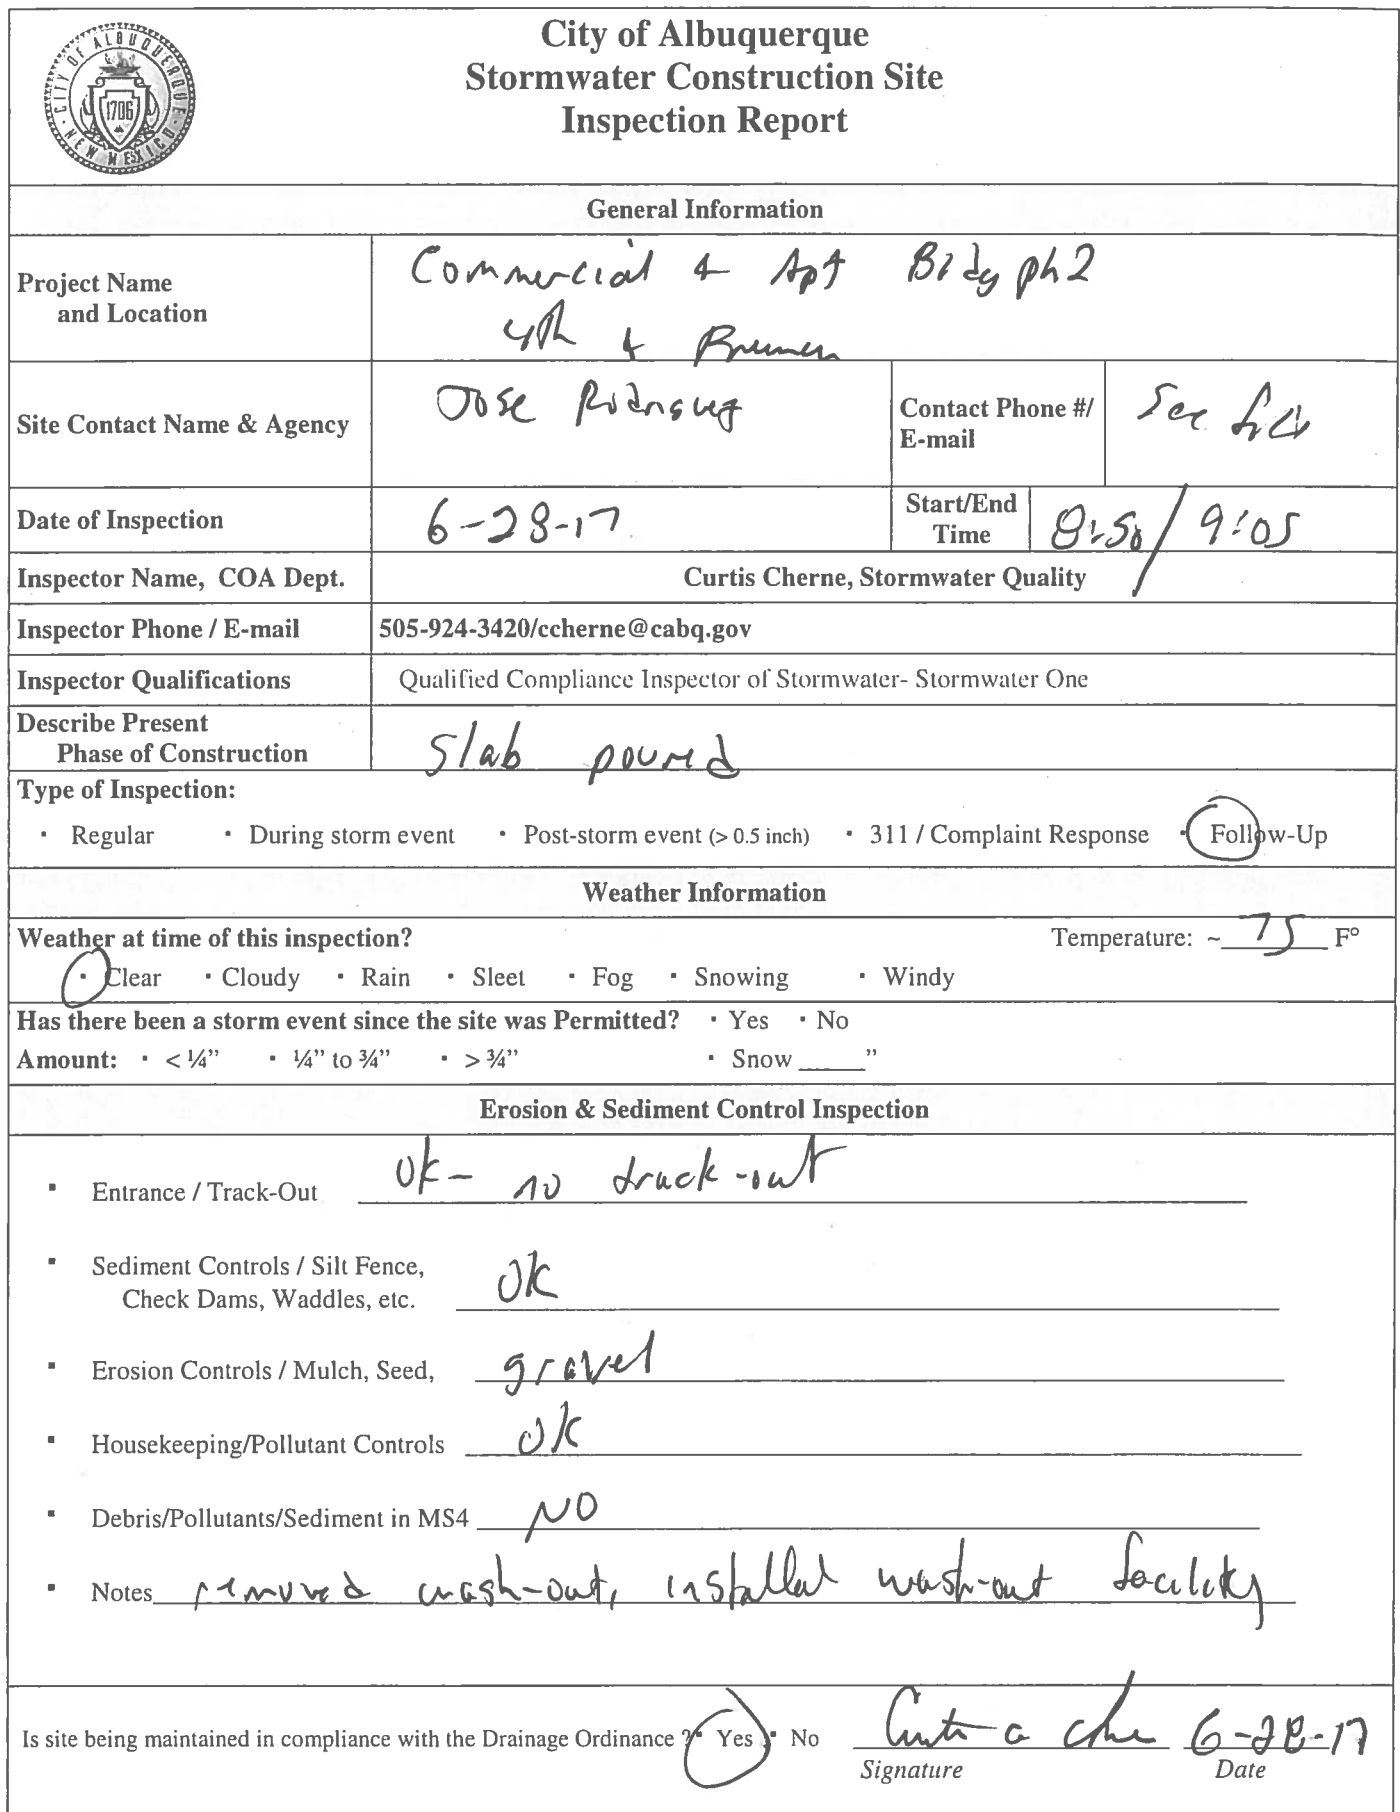 CITY OF ALBUQUERQUE
1706
NEW MEXICO
City of Albuquerque
Stormwater Construction Site
Inspection Report
General Information
Project Name
and Location
Commercial & Apt Bldg ph2
4th & Bremen
Site Contact Name & Agency
Jose Rodriguez
Contact Phone #/
E-mail
See
Date of Inspection
6-28-17
Start/End
Time
8:50/9:05
Inspector Name, COA Dept.
Curtis Cherne, Stormwater Quality
Inspector Phone / E-mail
505-924-3420/ccherne@cabq.gov
Inspector Qualifications
Qualified Compliance Inspector of Stormwater- Stormwater One
Describe Present
Phase of Construction
Slab poured
Type of Inspection:
▪ Regular ▪ During storm event ▪ Post-storm event (> 0.5 inch) ▪ 311 / Complaint Response ▪ Follow-Up
Weather Information
Weather at time of this inspection? Temperature: ~ 75 F°
▪ Clear ▪ Cloudy ▪ Rain ▪ Sleet ▪ Fog ▪ Snowing ▪ Windy
Has there been a storm event since the site was Permitted? ▪ Yes ▪ No
Amount: ▪ < ¼” ▪ ¼” to ¾” ▪ > ¾” ▪ Snow _____”
Erosion & Sediment Control Inspection
▪ Entrance / Track-Out ok- no track-out
▪ Sediment Controls / Silt Fence,
Check Dams, Waddles, etc. ok
▪ Erosion Controls / Mulch, Seed, gravel
▪ Housekeeping/Pollutant Controls ok
▪ Debris/Pollutants/Sediment in MS4 NO
▪ Notes removed wash-out, installed wash-out facility
Is site being maintained in compliance with the Drainage Ordinance ? ▪ Yes ▪ No Curtis a Che 6-28-17
Signature Date